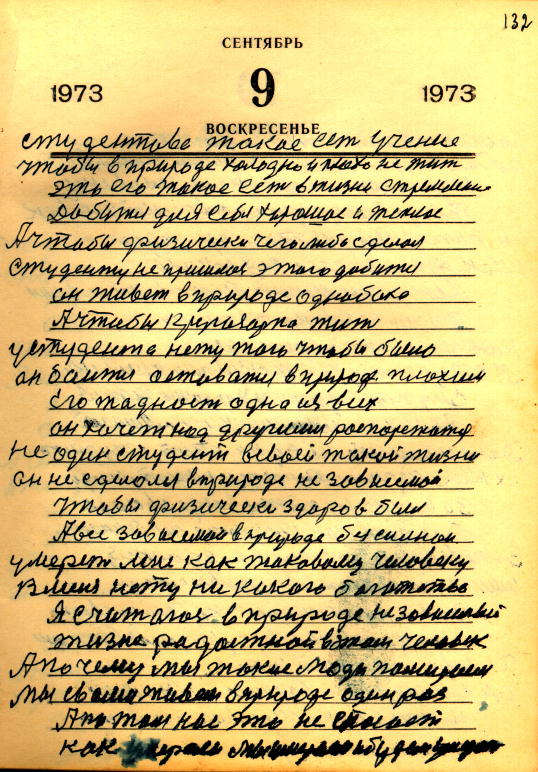 132
СЕНТЯБРЬ
1973 9 1973
ВОСКРЕСЕНЬЕ
студентово такое ест учение
чтобы в природе холодно и плохо не жит
это его такое ест в жизни стремление
Добытися для себя хорошое и теплое
А чтобы физически чего либо сделал
студенту не пришлося этого добитися
он живет в природе однобоко
А чтобы жит
у студента нету того чтобы было
он боится оставатся в природе плохим
Его жадност одна из всех
он хочет над другими распоряжатся
Не один студент в своей такой жизни
он не сделался в природе не зависемой
Чтобы физически здоров был
А все зависемой в природе
умерет мне как таковому человеку
В меня нету ни какого богатства
Я считаюся в природе независимый
жизне радостной в этом человек
А почему мы такие люди помираем
мы свами живем в природе один раз
А потом нас это не спасает
как умерали мы